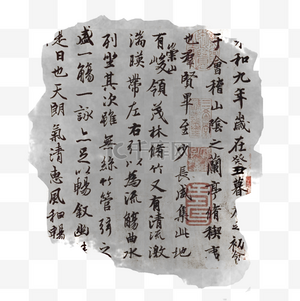 和九年歲在癸丑暮之初會
于會稽山陰之蘭亭脩禊事
也群賢畢至少長咸集此地
崇山
有峻領茂林脩竹又有清流激
湍暎帶左右引以為流觴曲水
列坐其次雖無絲竹管弦之
盛一觴一詠亦足以暢敘幽
是日也天朗氣清惠風和暢